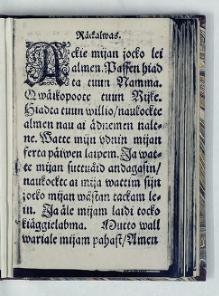 Räckalwas.
Ackie mijan jocko lei
almen. Paßen hiad
ta tuun Namma.
Qwäikopoote tuun Rijke.
Hadeta tuun willio/ naukockte
almen nau ai ädnemen nale-
ne. Watte mijn vdnin mijan
ferta päiwen laipem. Ja wat-
te mijan suttuäid andagasin/
naukockte ai mija wattim siin
jocko mijan wästan tackam le-
in. Ja äle mijam laidi tocko
kiäggielabma. Mutto wall
wariale mijam pahast/ Amen